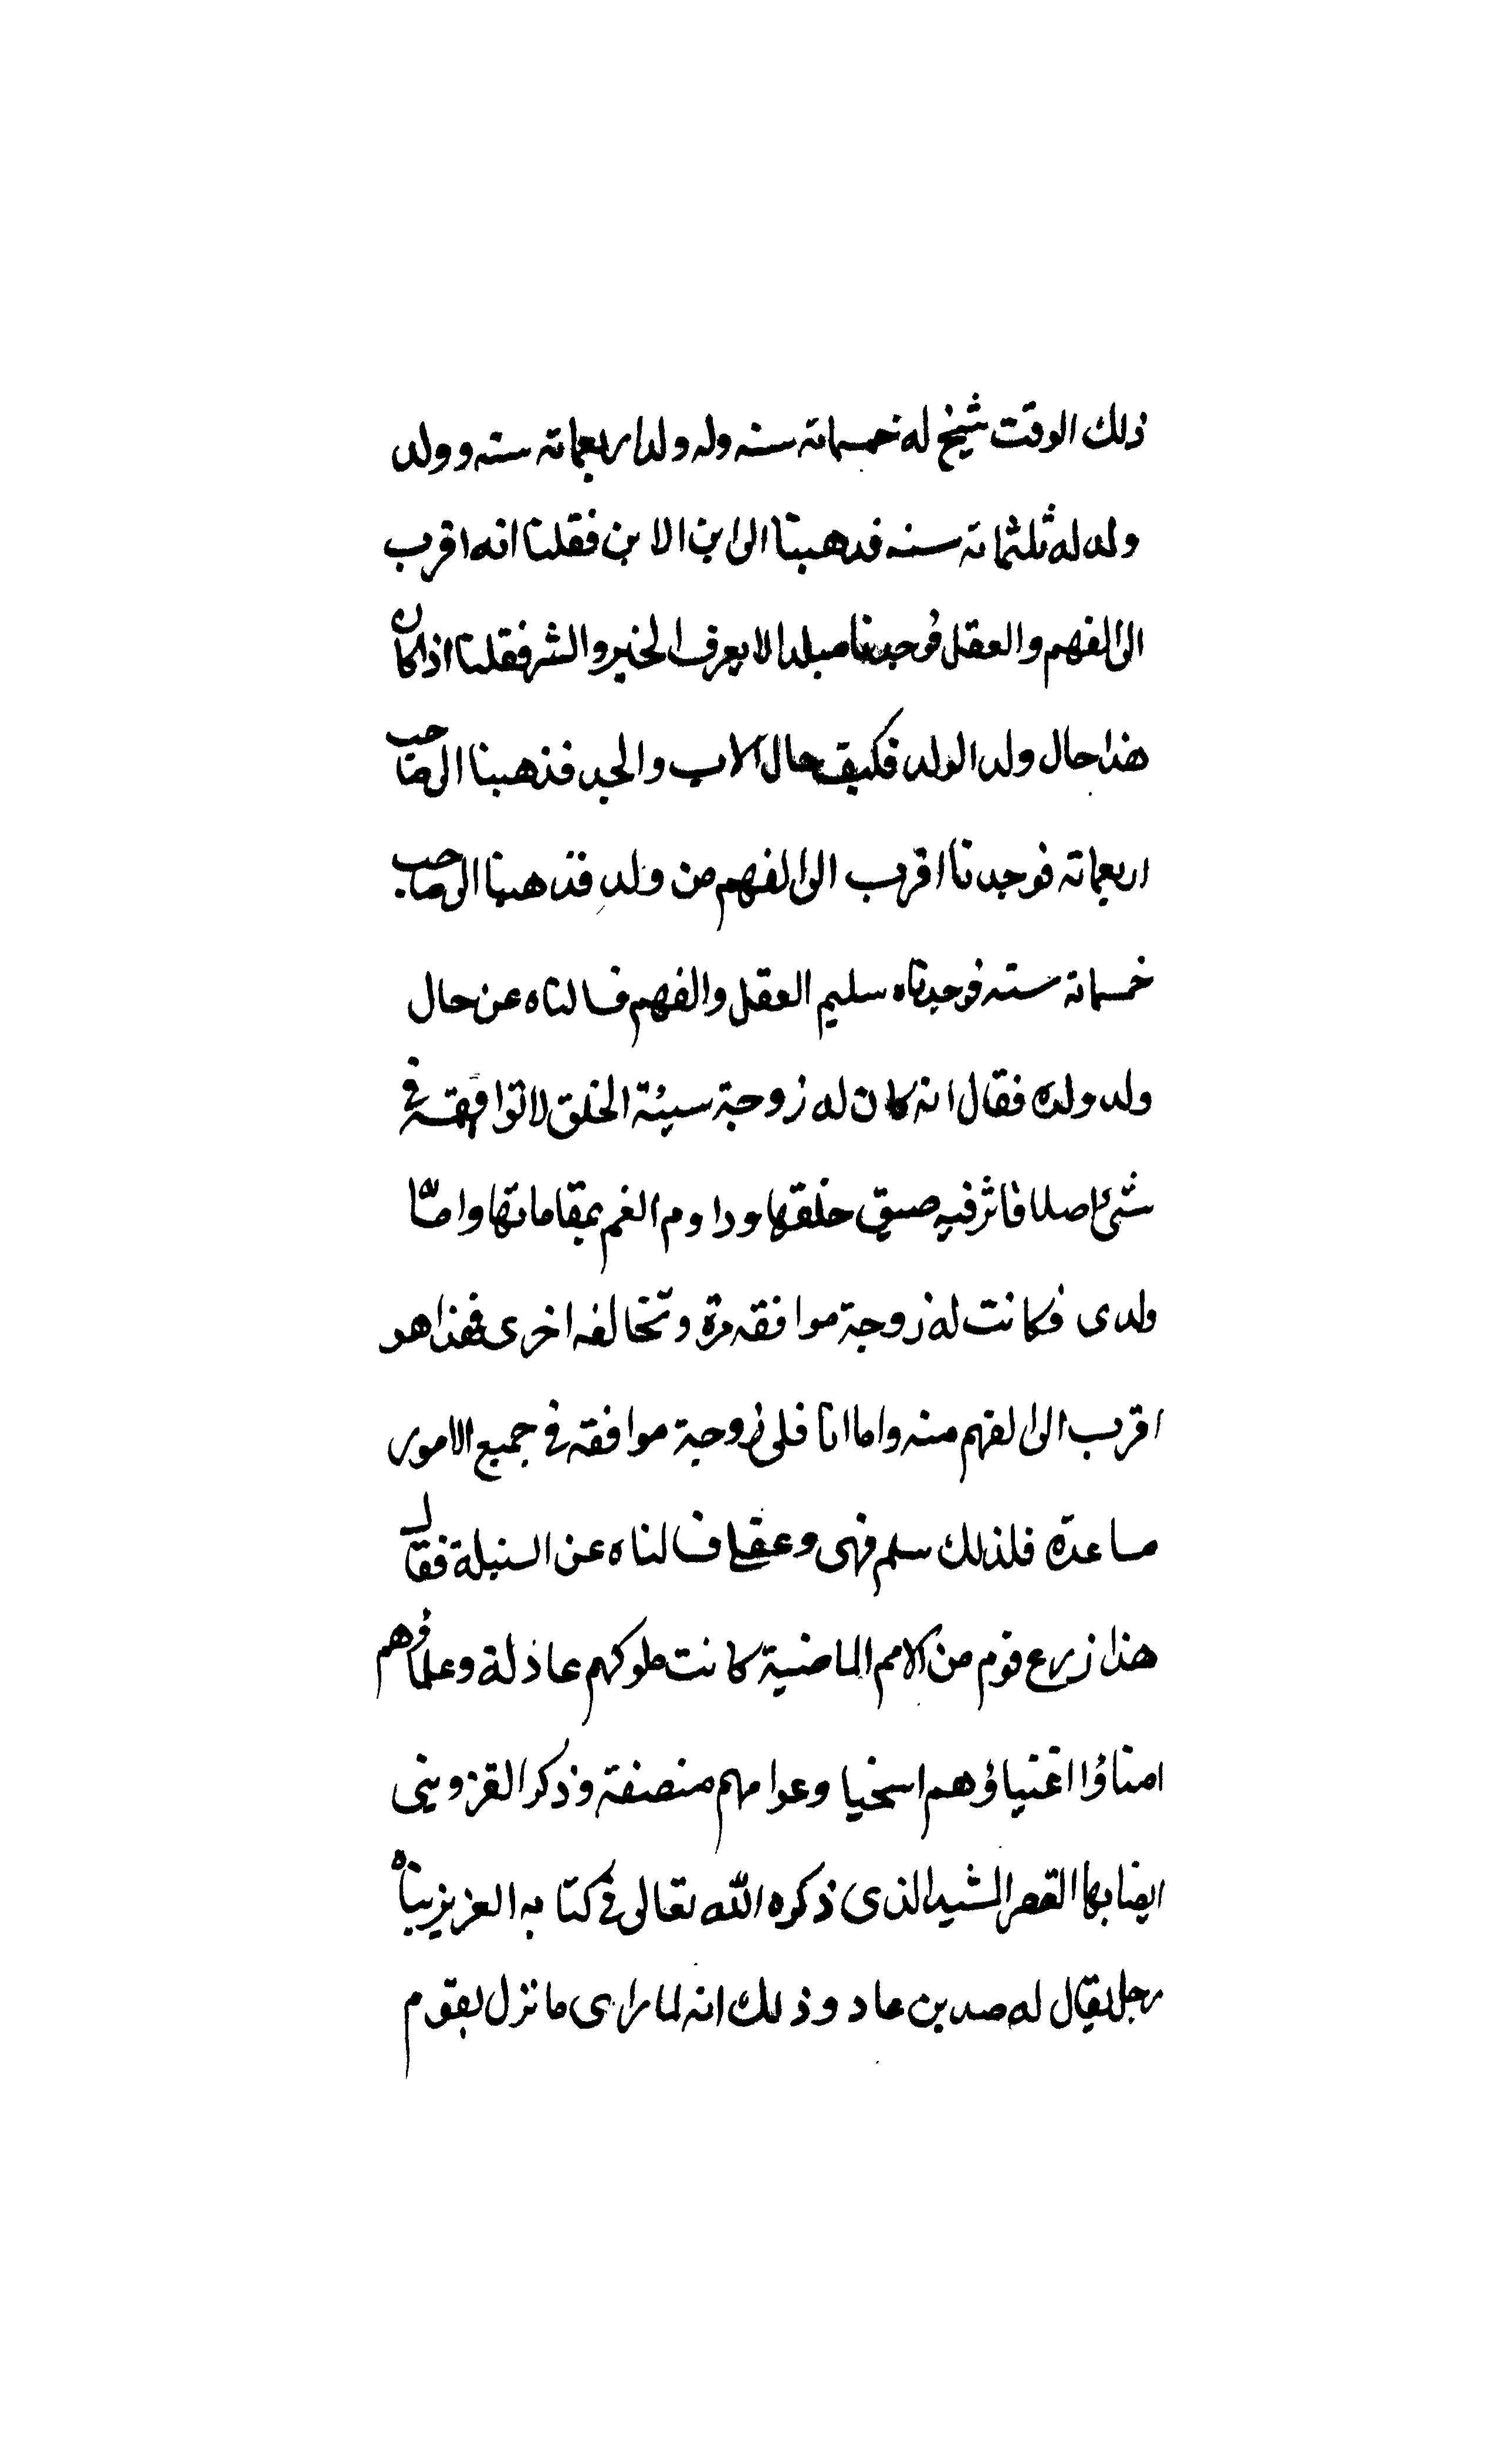 ذلك الوقت شيخ له خمسمائة سنه وله ولد اربعمائة سنه وولد
ولد له ثلثمائة سنه فذهبنا الى ابن الابن فقلنا انه اقرب
الى الفهم والعقل فوجدنا مبلدا لا يعرف الخير والشر فقلنا اذا كان
هذا حال ولد الولد فكيف حال الاب والجد فذهبنا الى صاحب
اربعمائة فوجدنا اقرب الى الفهم من ولد فذهبنا الى صاحب
خمسمائة سنه فوجدناه سليم العقل والفهم فسالناه عن حال
ولد ولده فقال انه كان له زوجة سيئة الخلق لا توافقه في
شئ اصلا فاثر فيه ضيق خلقها وداوم الغم بمقاماتها واما
ولدى فكانت له زوجة موافقه مرة وتخالفه اخرى فهذا هو
اقرب الى الفهم منه واما انا فلى زوجة موافقه في جميع الامور
مساعدة فلذلك سلم فهمى وعقلى فسالناه عن السنبلة فقال
هذا زرع قوم من الامم الماضية كانت ملوكهم عادلة وعلماؤهم
امناؤا اغنياؤهم اسخيا وعوامهم منصفة وذكر القزوينى
ايضا بها القصر المشيد الذى ذكره الله تعالى في كتابه العزيز بناه
رجل يقال له صد بن عاد وذلك انه لما راى ما نزل بقوم